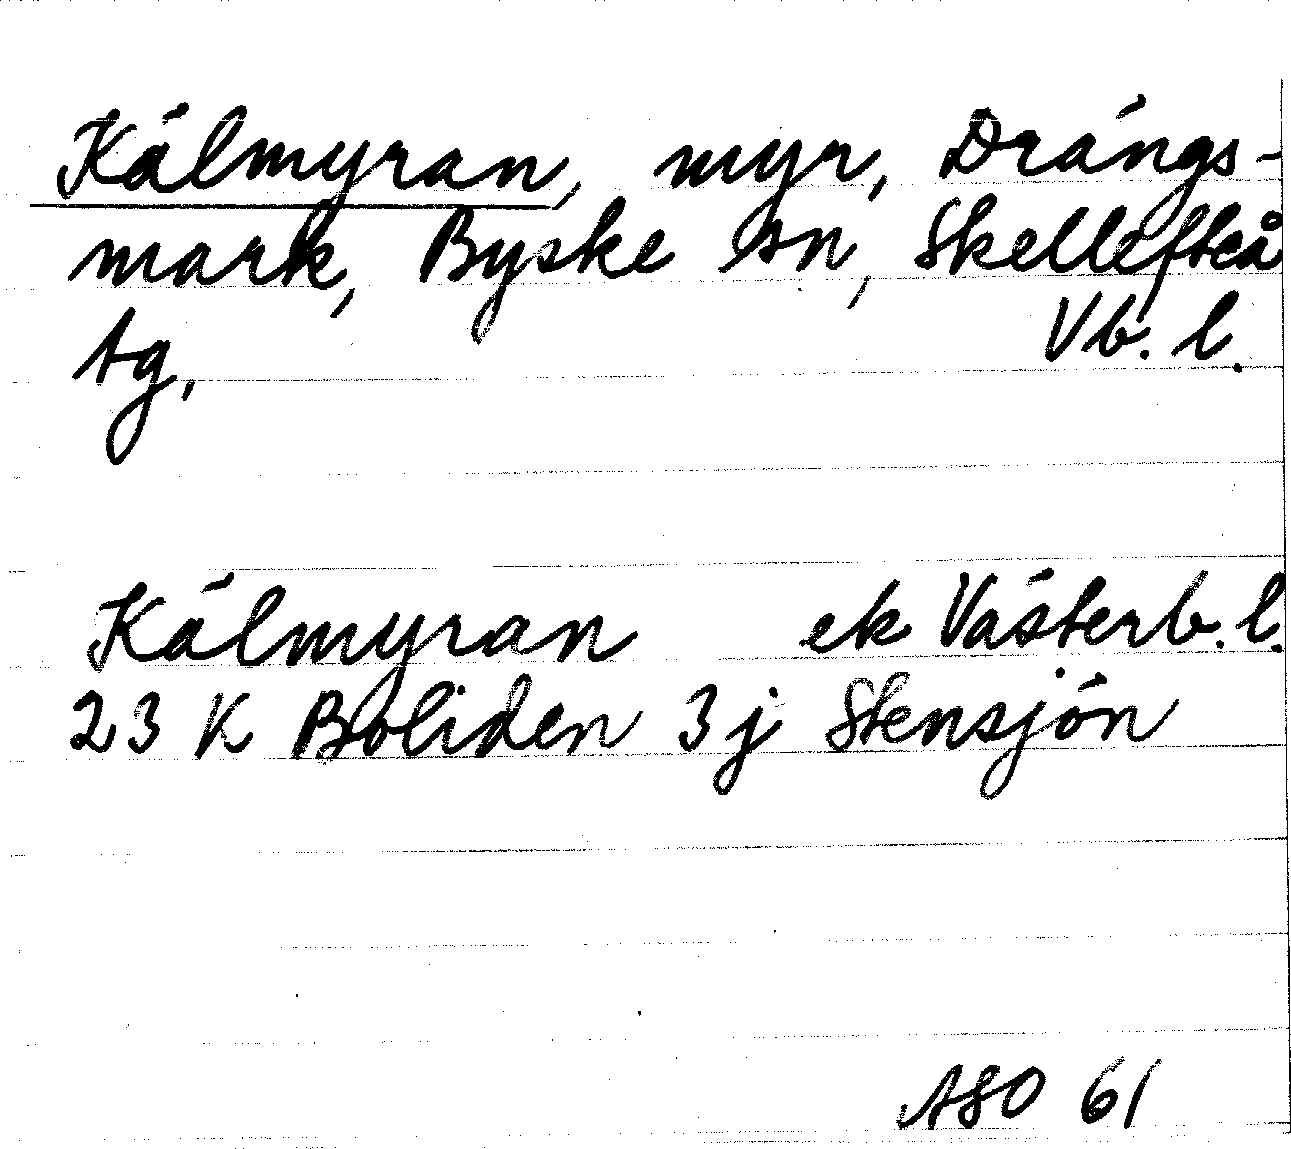 Kälmyran, myr, Drängs-
mark, Byske sn, Skellefteå
tg, Vb. l.
Kälmyran ek Västerb. l.
23 K Boliden 3j Stensjön
ASO 61